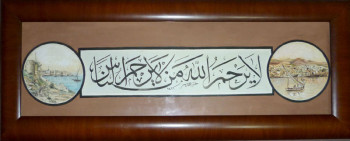 لا يرحم الله من لا يرحم الناس